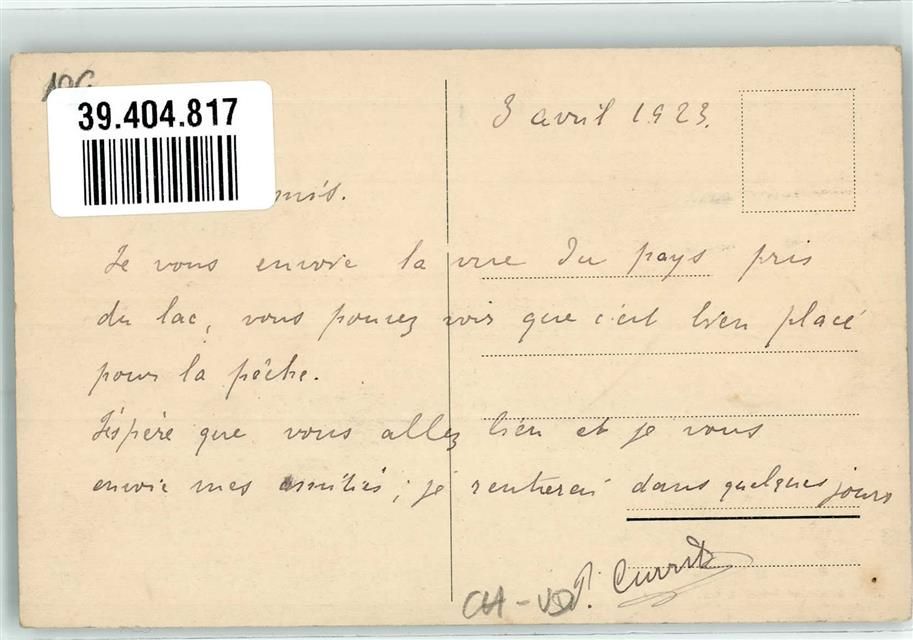 39.404.817
3 avril 1923.
Je vous envoie la vue du pays pris
du lac, vous pouvez voir que c'est bien placé
pour la pêche.
J'éspère que vous allez bien et je vous
envoie mes amitiés ; je rentrerai dans quelques jours
CH-VD